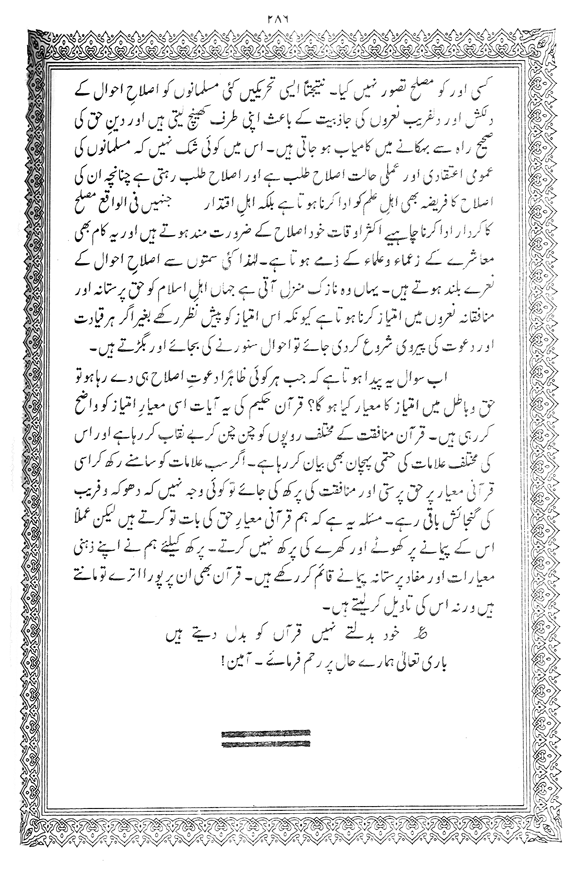 ۲۸۶
کسی اور کو مصلح تصور نہیں کیا۔ نتیجتاً ایسی تحریکیں کئی مسلمانوں کو اصلاحِ احوال کے
دلکش اور دلفریب نعروں کی جاذبیت کے باعث اپنی طرف کھینچ لیتی ہیں اور دینِ حق کی
صحیح راہ سے بہکانے میں کامیاب ہو جاتی ہیں۔ اس میں کوئی شک نہیں کہ مسلمانوں کی
عمومی اعتقادی اور عملی حالت اصلاح طلب ہے اور اصلاح طلب رہتی ہے چنانچہ ان کی
اصلاح کا فریضہ بھی اہلِ علم کو ادا کرنا ہوتا ہے بلکہ اہلِ اقتدار جنہیں فی الواقع مصلح
کا کردار ادا کرنا چاہیے اکثر اوقات خود اصلاح کے ضرورت مند ہوتے ہیں اور یہ کام بھی
معاشرے کے زعماء و علماء کے ذمے ہوتا ہے۔ لہٰذا کئی سمتوں سے اصلاحِ احوال کے
نعرے بلند ہوتے ہیں۔ یہاں وہ نازک منزل آتی ہے جہاں اہلِ اسلام کو حق پرستانہ اور
منافقانہ نعروں میں امتیاز کرنا ہوتا ہے کیونکہ اس امتیاز کو پیشِ نظر رکھے بغیر اگر ہر قیادت
اور دعوت کی پیروی شروع کر دی جائے تو احوال سنورنے کی بجائے اور بگڑتے ہیں۔
اب سوال یہ پیدا ہوتا ہے کہ جب ہر کوئی ظاہراً دعوتِ اصلاح ہی دے رہا ہو تو
حق و باطل میں امتیاز کا معیار کیا ہو گا؟ قرآن حکیم کی یہ آیات اسی معیارِ امتیاز کو واضح
کر رہی ہیں۔ قرآن منافقت کے مختلف رویوں کو چن چن کر بے نقاب کر رہا ہے اور اس
کی مختلف علامات کی حتمی پہچان بھی بیان کر رہا ہے۔ اگر سب علامات کو سامنے رکھ کر اسی
قرآنی معیار پر حق پرستی اور منافقت کی پرکھ کی جائے تو کوئی وجہ نہیں کہ دھوکہ و فریب
کی گنجائش باقی رہے۔ مسئلہ یہ ہے کہ ہم قرآنی معیارِ حق کی بات تو کرتے ہیں لیکن عملاً
اس کے پیمانے پر کھوٹے اور کھرے کی پرکھ نہیں کرتے۔ پرکھ کیلئے ہم نے اپنے ذہنی
معیارات اور مفاد پرستانہ پیمانے قائم کر رکھے ہیں۔ قرآن بھی ان پر پورا اترے تو مانتے
ہیں ورنہ اس کی تاویل کر لیتے ہیں۔
؏ خود بدلتے نہیں قرآں کو بدل دیتے ہیں
باری تعالیٰ ہمارے حال پر رحم فرمائے۔ آمین!